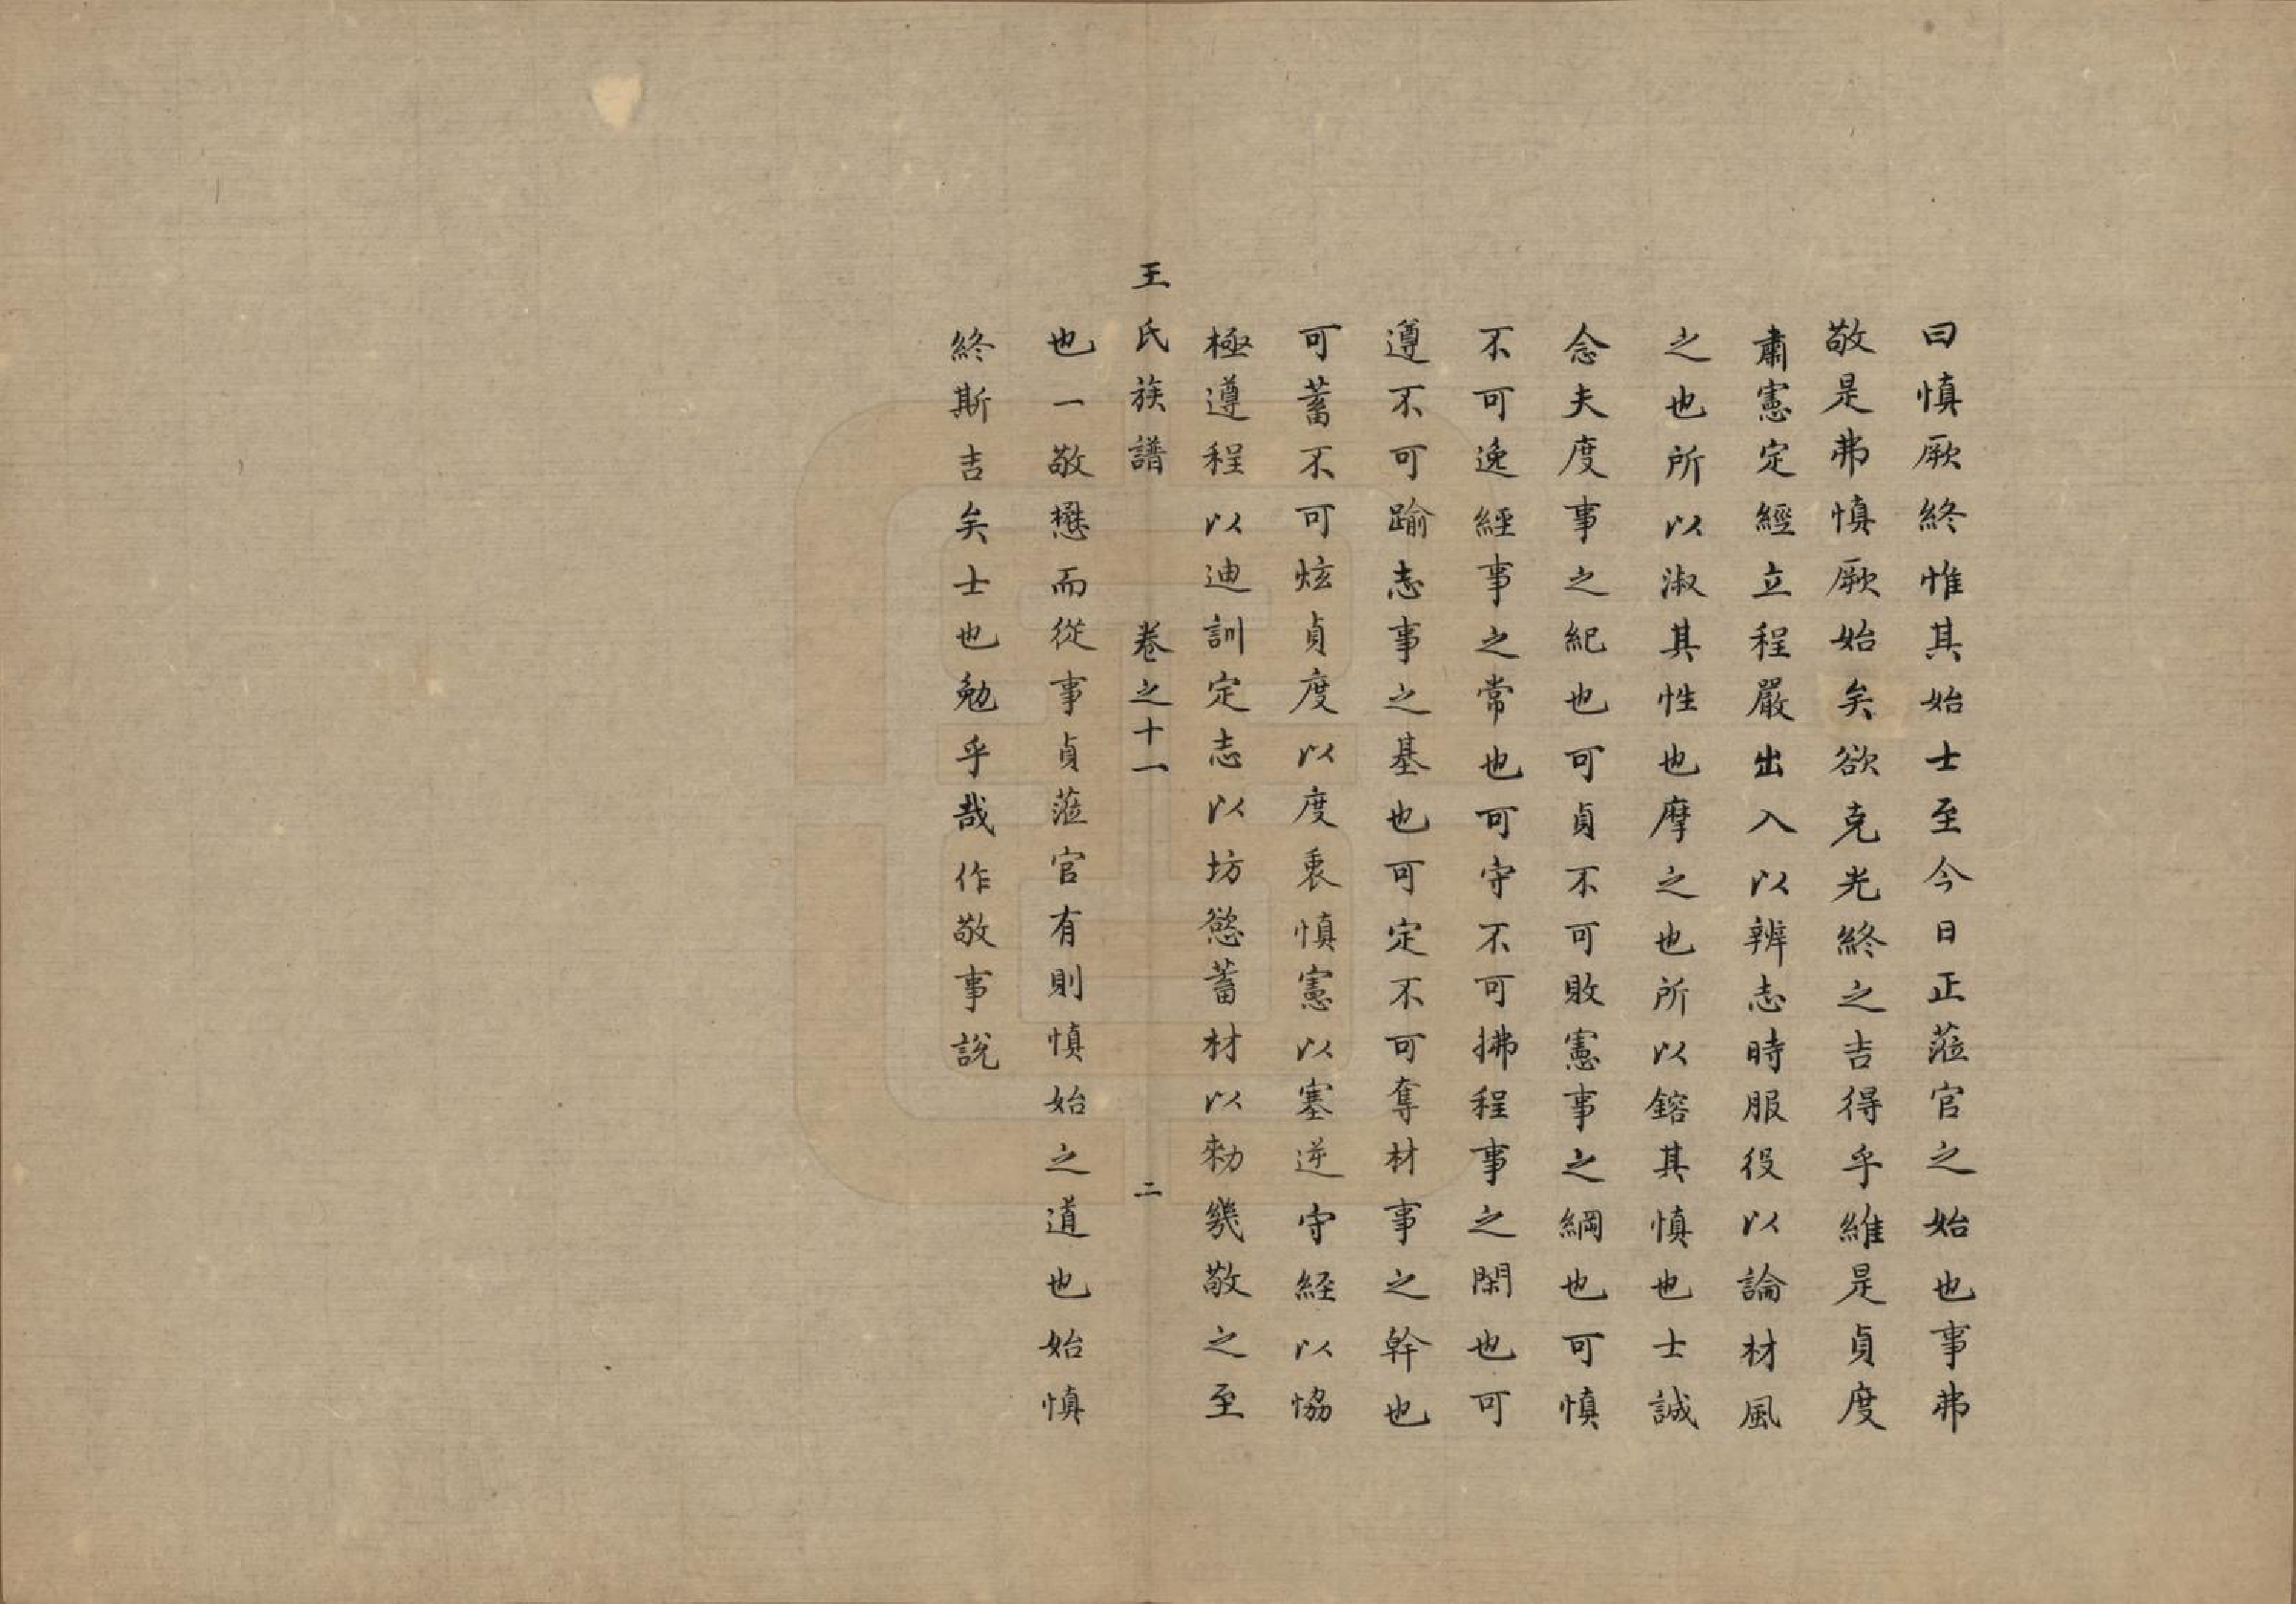 曰慎厥終惟其始士至今日正蒞官之始也事弗
敬是弗慎厥始矣欲克光終之吉得乎維是貞度
肅憲定經立程嚴出入以辨志時服役以論材風
之也所以淑其性也摩之也所以鎔其慎也士誠
念夫度事之紀也可貞不可敗憲事之綱也可慎
不可逸經事之常也可守不可拂程事之閑也可
遵不可踰志事之基也可定不可奪材事之幹也
可蓄不可炫貞度以度衷慎憲以塞逆守経以恊
極遵程以迪訓定志以坊慾蓄材以勑幾敬之至
王氏族譜 卷之十一 二
也一敬懋而從事貞蒞官有則慎始之道也始慎
終斯吉矣士也勉乎哉作敬事説